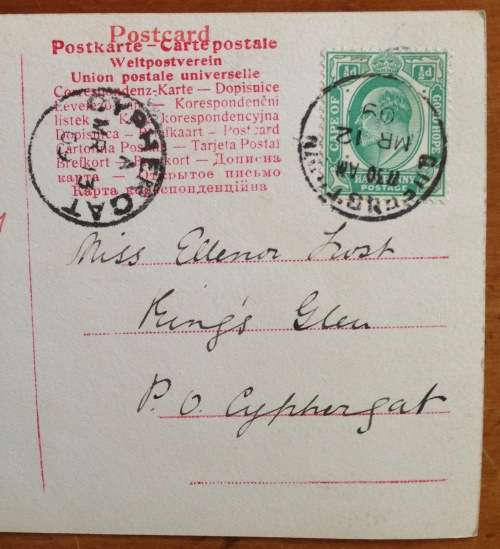 Postcard
Postkarte – Carte postale
Weltpostverein
Union postale universelle
Correspondenz-Karte — Dopisnice
Korespondenční
listek — korespondencyjna
Dopisnica — Postcard
Cartolina Postale — Tarjeta Postal
Brefkort — Дописна
карта — Открытое письмо
Карта корреспонденційна
GAT
MR
CAPE OF GOOD HOPE
½d ½d
POSTAGE
MR 12
09
Miss Ellenor Frost
King's Glen
P.O. Cyphergat